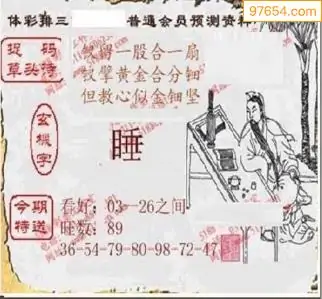 97654.com
体彩排三 普通会员预测资料
捉码
草头诗
钗留一股合一扇
钗擘黄金合分钿
但教心似金钿坚
玄機字
睡
今期
特送
看好：03--26之间
旺数：89
36-54-79-80-98-72-47